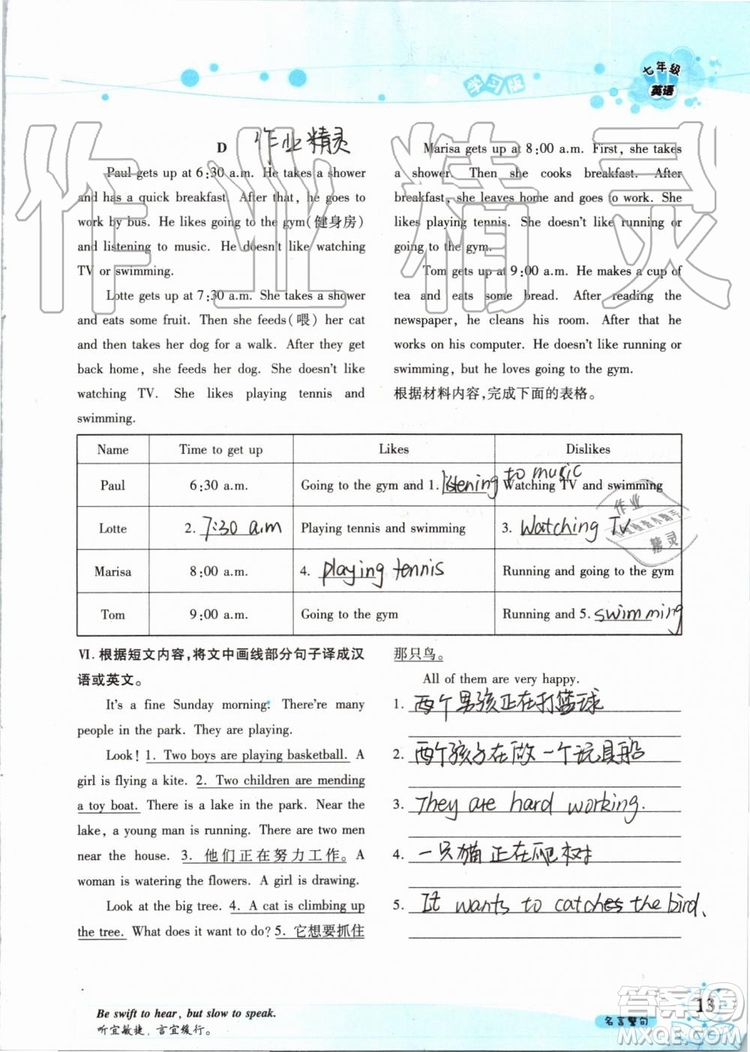 七年级
学习版
英语
D 作业精灵
Paul gets up at 6:30 a.m. He takes a shower
and has a quick breakfast. After that, he goes to
work by bus. He likes going to the gym(健身房)
and listening to music. He doesn't like watching
TV or swimming.
Lotte gets up at 7:30 a.m. She takes a shower
and eats some fruit. Then she feeds(喂) her cat
and takes her dog for a walk. After they get
back home, she plays with her cat. She doesn't like
watching TV. She likes playing tennis and
swimming.
Marisa gets up at 8:00 a.m. First, she takes
a shower. Then she cooks breakfast. After
breakfast, she leaves home and goes to work. She
likes playing tennis. She doesn't like running or
going to the gym.
Tom gets up at 9:00 a.m. He makes a cup of
tea and eats some bread. After reading the
newspaper, he cleans his room. After that, he
works on his computer. He doesn't like running or
swimming, but he loves going to the gym.
根据材料内容,完成下面的表格。
Name Time to get up Likes Dislikes
Paul 6:30 a.m. Going to the gym and 1. listening to music Watching TV and swimming
Lotte 2. 7:30 a.m Playing tennis and swimming 3. Watching TV
Marisa 8:00 a.m. 4. playing tennis Running and going to the gym
Tom 9:00 a.m. Going to the gym Running and 5. swimming
Ⅵ. 根据短文内容,将文中画线部分句子译成汉
语或英文。
It's a fine Sunday morning. There're many
people in the park. They are playing.
Look! 1. Two boys are playing basketball. A
girl is flying a kite. 2. Two children are mending
a toy boat. There is a lake in the park. Near the
lake, a young man is running. There are two men
near the house. 3. 他们正在努力工作。A
woman is watering the flowers. A girl is drawing.
Look at the big tree. 4. A cat is climbing up
the tree. What does it want to do? 5. 它想要抓住
那只鸟。
All of them are very happy.
1. 两个男孩正在打篮球
2. 两个孩子在做一个玩具船
3. They are hard working.
4. 一只猫正在爬树
5. It wants to catches the bird.
Be swift to hear, but slow to speak.
听宜敏捷,言宜缓行。
名言警句
13
作业精灵
答案圈